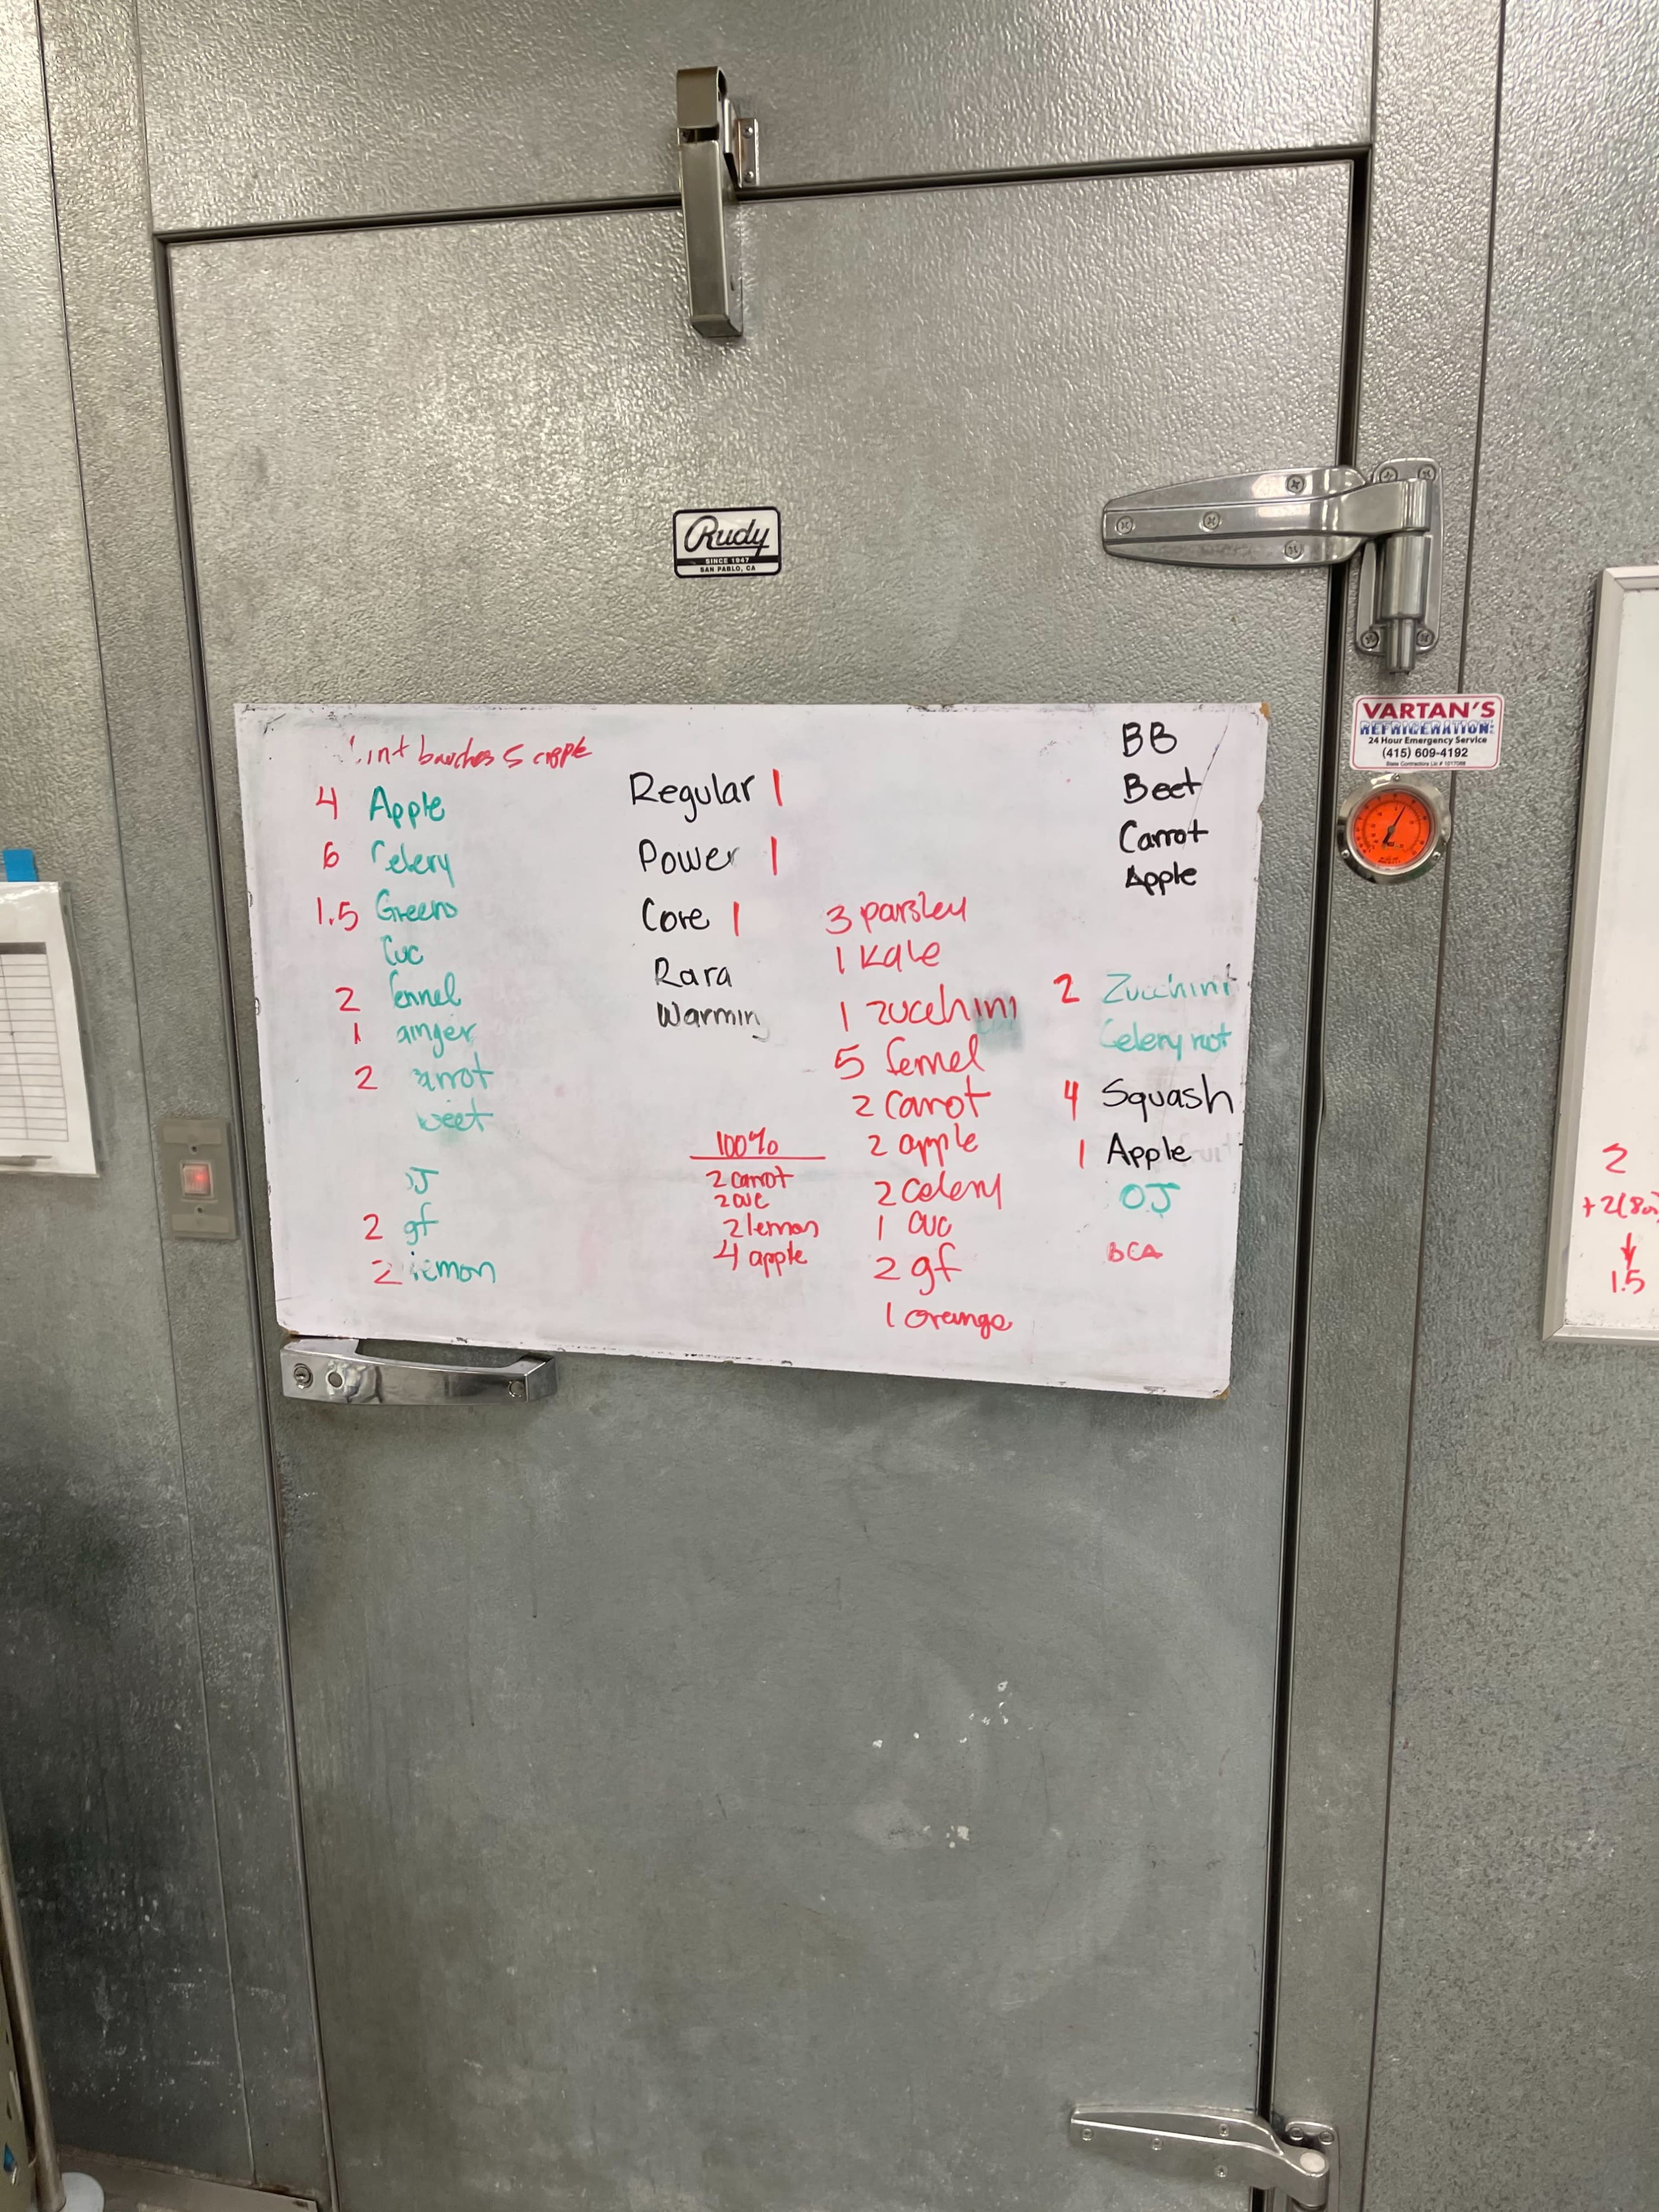 Rudy
SINCE 1947
SAN PABLO, CA
VARTAN'S
REFRIGERATION:
24 Hour Emergency Service
(415) 609-4192
int bunches 5 apple
4 Apple
6 Celery
1.5 Greens
Cuc
2 fennel
1 ginger
2 arrot
beet
OJ
2 gf
2 lemon
Regular 1
Power 1
Core 1
Rara
Warmin
100%
2 carrot
2 cuc
2 lemon
4 apple
3 parsley
1 Kale
1 zucchini
5 fennel
2 carrot
2 apple
2 celery
1 cuc
2 gf
1 orange
BB
Beet
Carrot
Apple
2 Zucchini
Celery root
4 Squash
1 Apple
OJ
BCA
2
+2(80
1.5